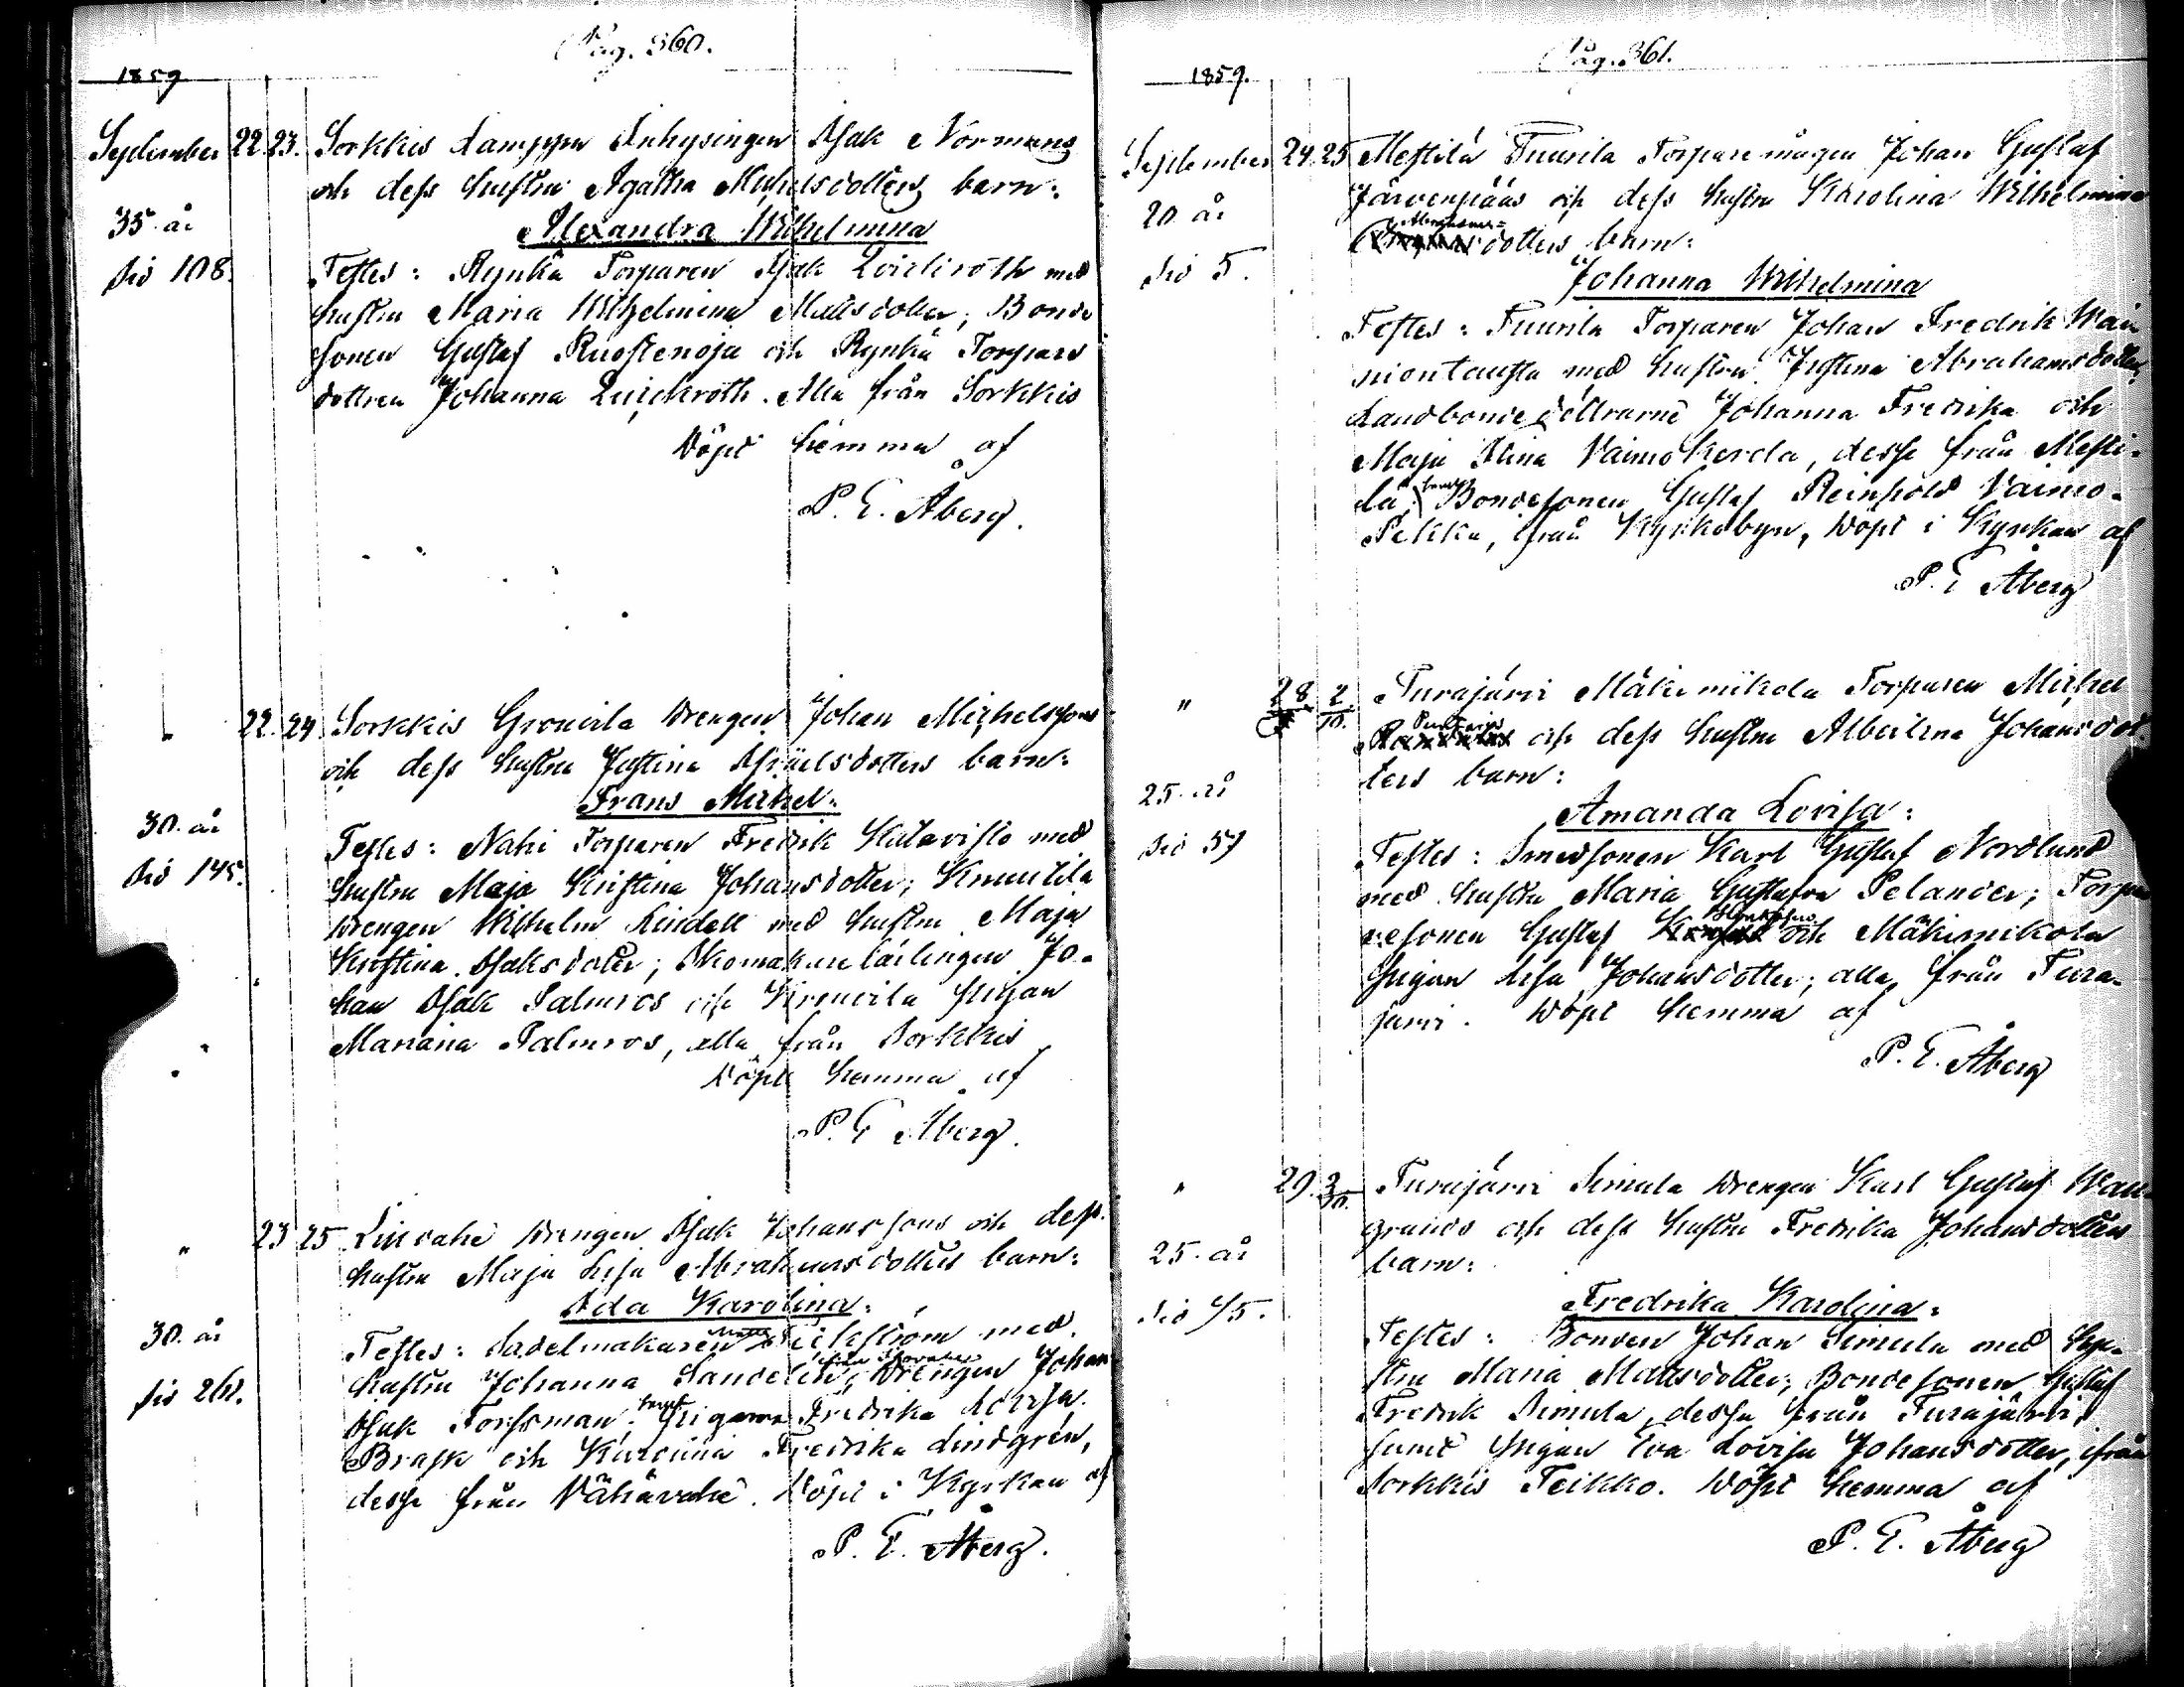 Pag. 360.
1859
September 22. 23. Sorkkis Lamppu Inhysingen Isak Normans
och dess hustru Agatha Michelsdotters barn:
35 år
Alexandra Wilhelmina
Sid 108.
Testes: Rynkä Torparen Isak Qvickroth med
hustru Maria Wilhelmina Mattsdotter; Bonde
sonen Gustaf Ruostenoja och Rynkä Torpare
dottren Johanna Quickroth. Alla från Sorkkis
Döpt hemma af
P. E. Åberg.
22. 24. Sorkkis Grouvila Drengen Johan Michelssons
och dess hustru Justina Isräelsdotters barn:
Frans Michel:
30. år
Testes: Nahi Torparen Fredrik Katavisto med
Sid 145.
hustru Maja Kristina Johansdotter; Knuutila
drengen Wilhelm Lindell med hustru Maja
Kristina Isaksdotter; Skomakare lärlingen Jo-
han Isak Palmros och pigan
Mariana Palmros, alla från Sorkkis
Döpt hemma af
P. E Åberg.
" 23 25 Drengen Isak Johanssons och dess
hustru Maja Lisa Abrahamsdotters barn:
Ada Karolina:
30. år
Testes: Sadelmakaren med
Sid 261.
hustru Johanna Sandelin, Drengen Johan
Isak Forssman, samt Pigorna Fredrika Lovisa
Brask och Karolina Fredrika Lindgrén,
desse från Vähävahe. Döpt i Kyrkan af
P. E. Åberg.
Pag. 361.
1859.
September 24. 25 Mestilä Tuurila Torpare mågen Johan Gustaf
Järvenpääs och dess hustru Karolina Wilhelmina
20 år
Abrahams-
dotters barn:
Sid 5.
Johanna Wilhelmina
Testes: Tuurila Torparen Johan Fredrik Wai-
niontausta med hustru Justina Abrahamsdotter,
Landbonde döttrarne Johanna Fredrika och
Maja Stina Vainiokerola, desse från Mesti-
lä; samt Bondesonen Gustaf Reinhold Vainio-
Pekka, från Kyrkobyn, Döpt i Kyrkan af
P. E Åberg
" 28 2/10. Turajärvi Mäkimikola Torparen Michel
och dess hustru Albertina Johansdot-
ters barn:
25. år
Amanda Lovisa:
Sid 57
Testes: Smedsonen Karl Gustaf Nordlund
med hustru Maria Gustafva Pelander; Torpa-
resonen Gustaf och Mäkimikola
pigan Lisa Johansdotter; alla från Tura-
järvi. Döpt hemma af
P. E. Åberg
" 29. 3/10. Turajärvi Simula Drengen Karl Gustaf Wan-
grunds och dess hustru Fredrika Johansdotters
25. år
barn:
Fredrika Karolina:
Sid 45.
Testes: Bonden Johan Simula med hu-
stru Maria Mattsdotter; Bondesonen Gustaf
Fredrik Simula, dessa från Turajärvi,
samt pigan Eva Lovisa Johansdotter, ifrån
Sorkkis Teikko. Döpt hemma af
P. E. Åberg